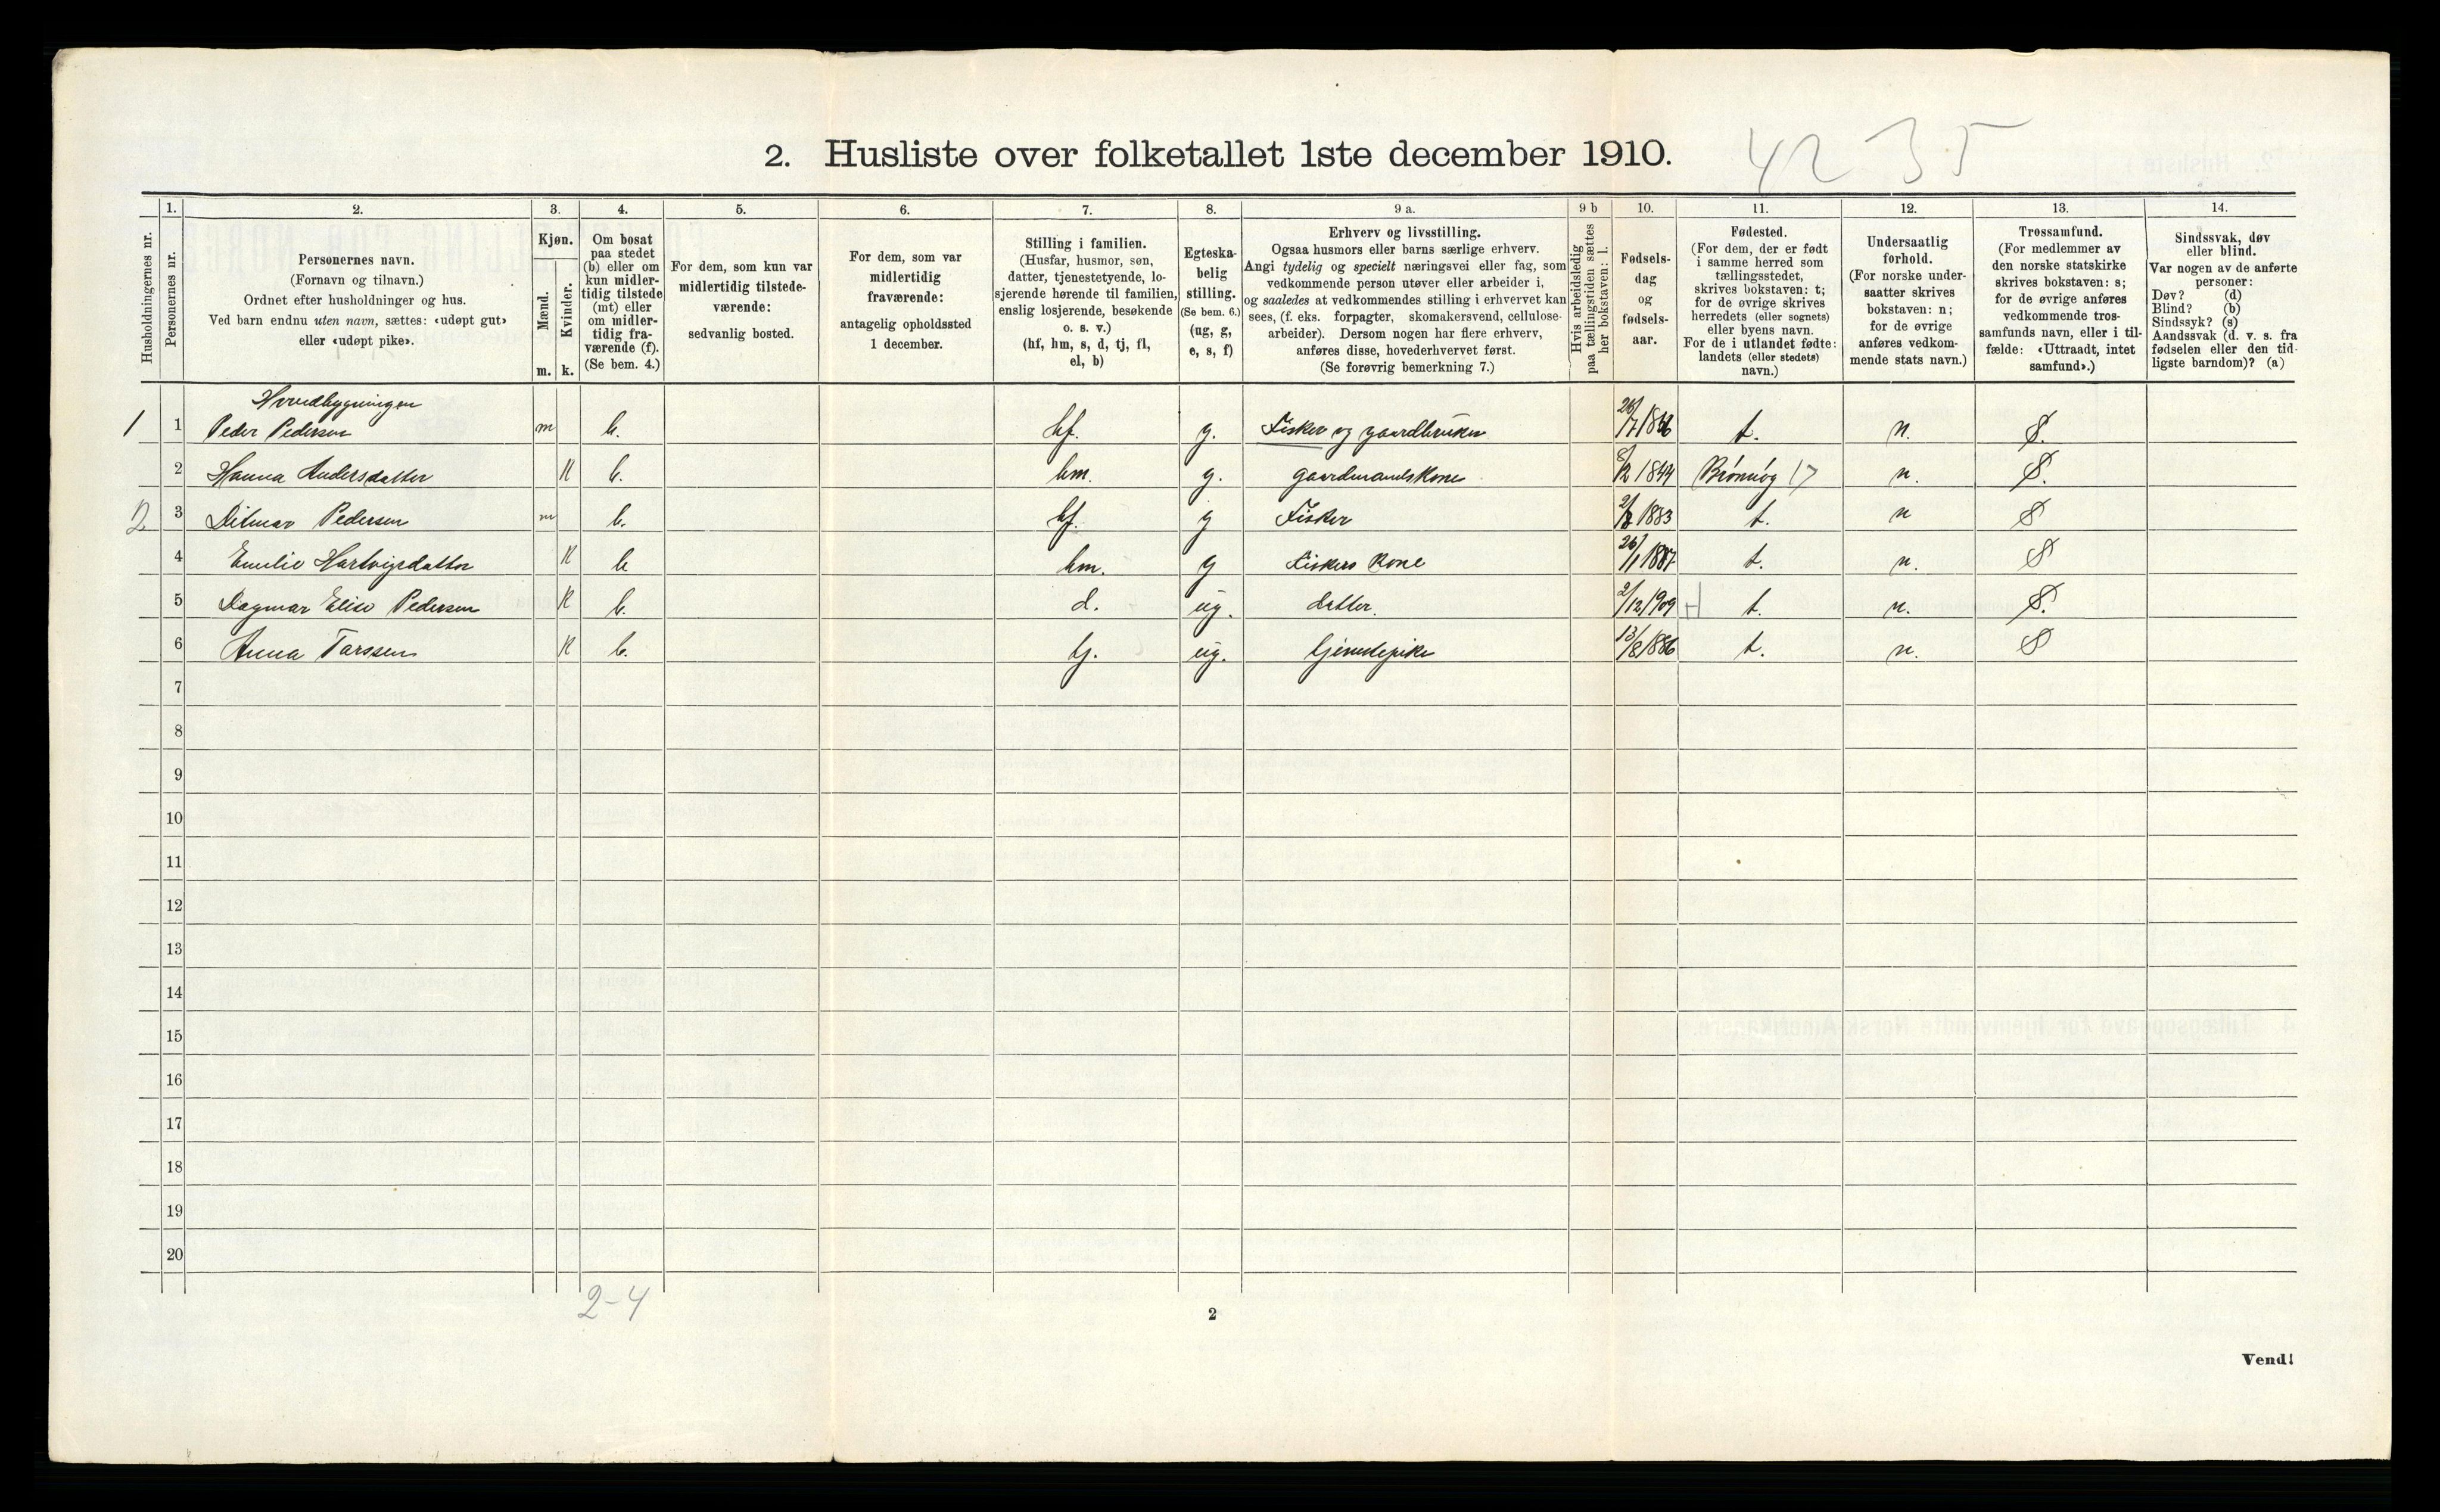 2. Husliste over folketallet 1ste december 1910.
42 35
Husholdningernes nr.
1.
Personernes nr.
2.
Personernes navn.
(Fornavn og tilnavn.)
Ordnet efter husholdninger og hus.
Ved barn endnu uten navn, sættes: «udøpt gut»
eller «udøpt pike».
3.
Kjøn.
Mænd.
Kvinder.
m. k.
4.
Om bosat
paa stedet
(b) eller om
kun midler-
tidig tilstede
(mt) eller
om midler-
tidig fra-
værende (f).
(Se bem. 4.)
5.
For dem, som kun var
midlertidig tilstede-
værende:
sedvanlig bosted.
6.
For dem, som var
midlertidig
fraværende:
antagelig opholdssted
1 december.
7.
Stilling i familien.
(Husfar, husmor, søn,
datter, tjenestetyende, lo-
sjerende hørende til familien,
enslig losjerende, besøkende
o. s. v.)
(hf, hm, s, d, tj, fl,
el, b)
8.
Egteska-
belig
stilling.
(Se bem. 6.)
(ug, g,
e, s, f)
9 a.
Erhverv og livsstilling.
Ogsaa husmors eller barns særlige erhverv.
Angi tydelig og specielt næringsvei eller fag, som
vedkommende person utøver eller arbeider i,
og saaledes at vedkommendes stilling i erhvervet kan
sees, (f. eks. forpagter, skomakersvend, cellulose-
arbeider). Dersom nogen har flere erhverv,
anføres disse, hovederhvervet først.
(Se forøvrig bemerkning 7.)
9 b
Hvis arbeidsledig
paa tællingstiden sættes
her bokstaven: l.
10.
Fødsels-
dag
og
fødsels-
aar.
11.
Fødested.
(For dem, der er født
i samme herred som
tællingsstedet,
skrives bokstaven: t;
for de øvrige skrives
herredets (eller sognets)
eller byens navn.
For de i utlandet fødte:
landets (eller stedets)
navn.)
12.
Undersaatlig
forhold.
(For norske under-
saatter skrives
bokstaven: n;
for de øvrige
anføres vedkom-
mende stats navn.)
13.
Trossamfund.
(For medlemmer av
den norske statskirke
skrives bokstaven: s;
for de øvrige anføres
vedkommende tros-
samfunds navn, eller i til-
fælde: «Uttraadt, intet
samfund».)
14.
Sindssvak, døv
eller blind.
Var nogen av de anførte
personer:
Døv? (d)
Blind? (b)
Sindssyk? (s)
Aandssvak (d. v. s. fra
fødselen eller den tid-
ligste barndom)? (a)
Hovedbygningen
1 1 Peder Pedersen m b. hf. g. Fisker og gaardbruker t. n. S.
2 Hanna Andersdatter K b. hm. g. gaardmandskone 8/12 1844 Brønnøy 17 n. S.
2 3 Ditmar Pedersen m b. hf. g Fisker 1883 t. n S
4 Emilie Hartvigsdatter K b hm. g Fiskers Kone 26/1 1887 t. n. S
5 Dagmar Elise Pedersen K b. d. ug. datter. 2/12 1909 t. n. S.
6 Anna Larssen K b. tj. ug. tjenestepike 13/8 1886 t. n. S
7
8
9
10
11
12
13
14
15
16
17
18
19
20
2-4
2
Vend!